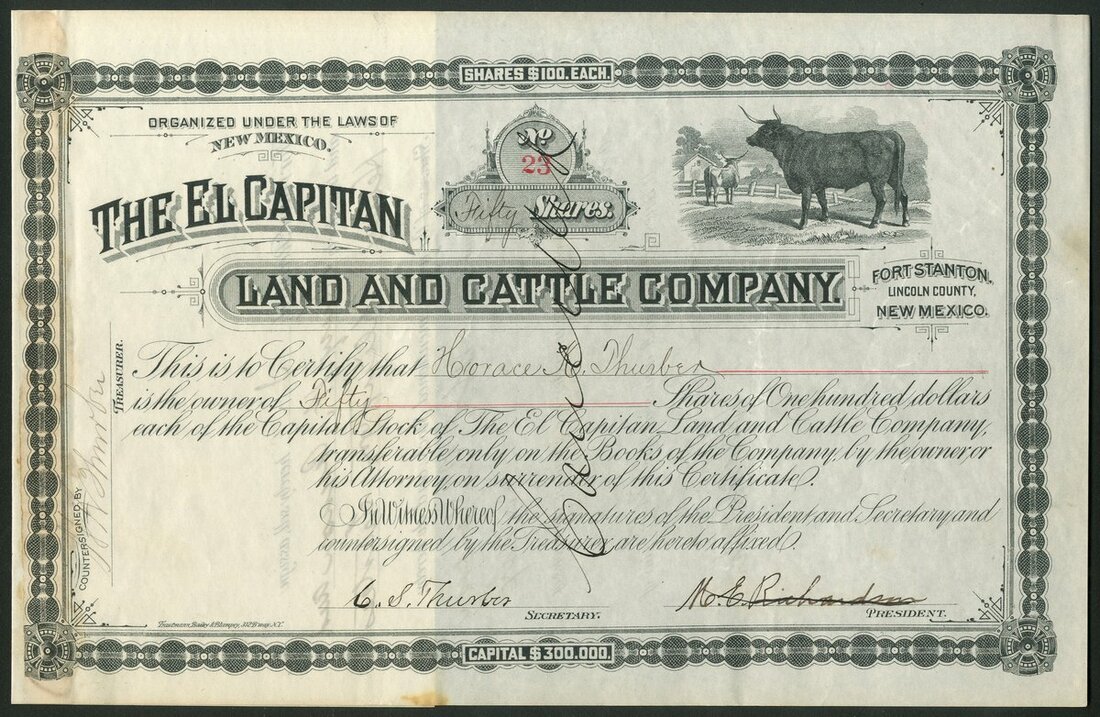 SHARES $100. EACH.
ORGANIZED UNDER THE LAWS OF
NEW MEXICO.
No
23
Fifty Shares.
THE EL CAPITAN
LAND AND CATTLE COMPANY.
FORT STANTON,
LINCOLN COUNTY,
NEW MEXICO.
This is to Certify that Horace K. Thurber
is the owner of Fifty Shares of One hundred dollars
each of the Capital Stock of The El Capitan Land and Cattle Company,
transferable only on the Books of the Company by the owner or
his Attorney on surrender of this Certificate.
In Witness Whereof the signatures of the President and Secretary and
countersigned by the Treasurer are hereto affixed.
C. S. Thurber
SECRETARY.
M. E. Richardson
PRESIDENT.
COUNTERSIGNED BY
Thurber
TREASURER.
Cancelled
Trautmann, Bailey & Blampey, 312 B'way, N.Y.
CAPITAL $300.000.